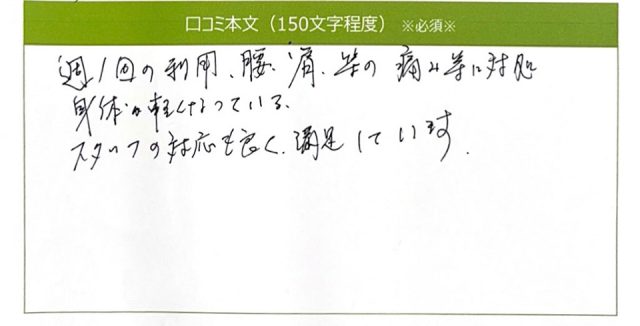 口コミ本文（150文字程度） ※必須※
週1回の利用、腰、肩、等の痛み等に対処
身体が軽くなっている。
スタッフの対応も良く、満足しています.